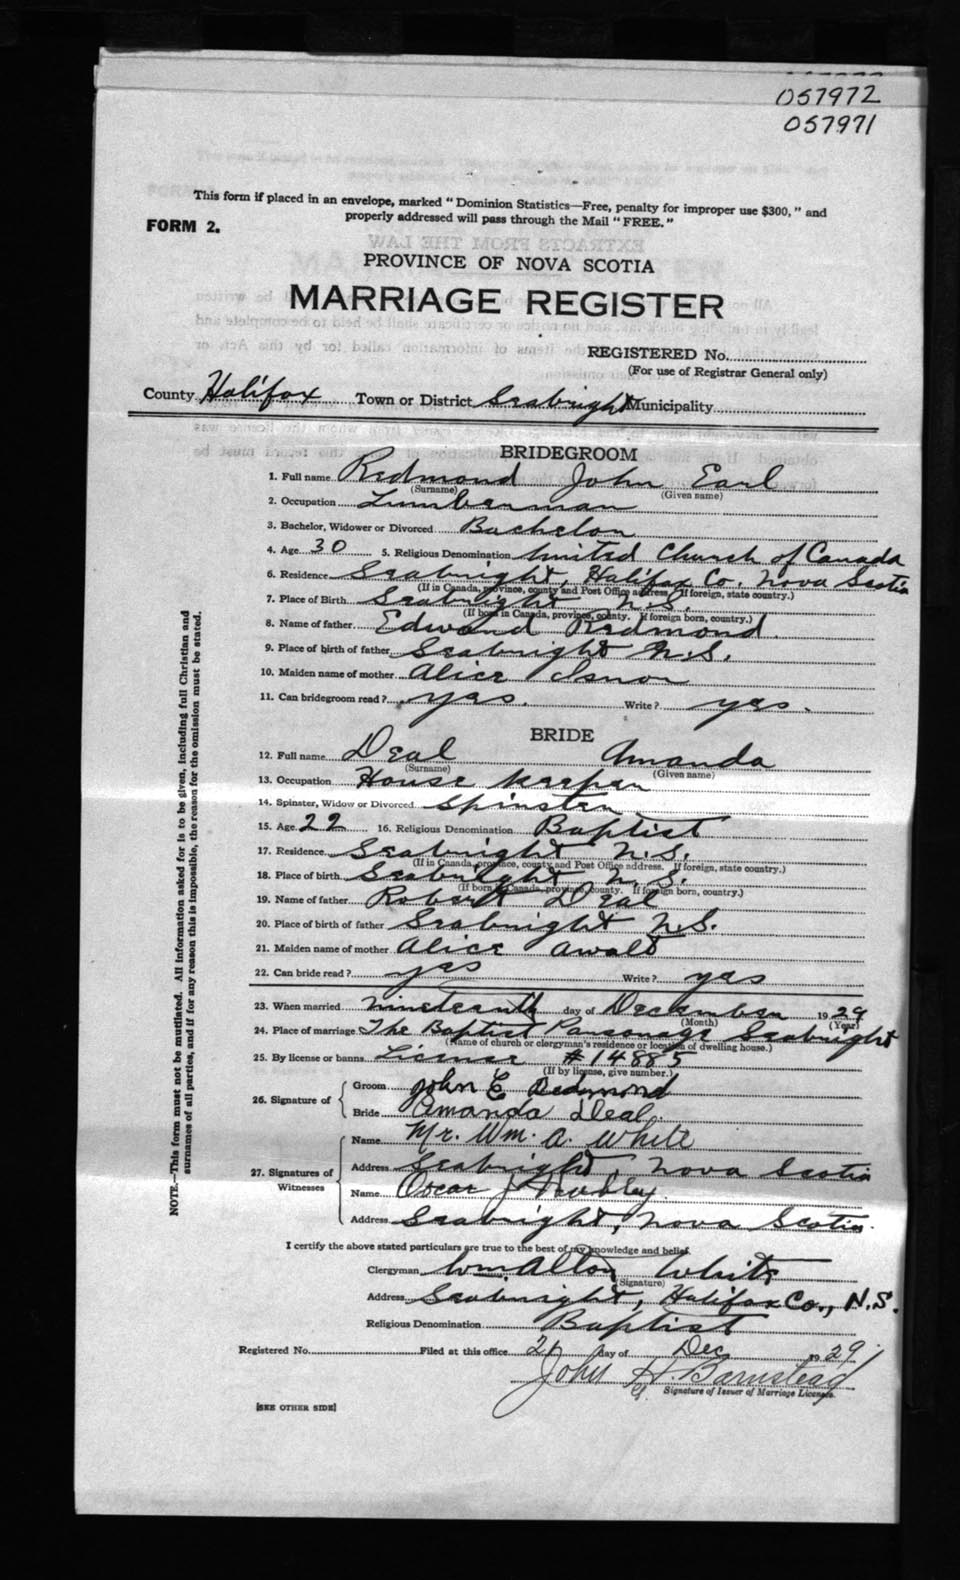 057972
057971
This form if placed in an envelope, marked "Dominion Statistics—Free, penalty for improper use $300," and
properly addressed will pass through the Mail "FREE."
FORM 2.
PROVINCE OF NOVA SCOTIA
MARRIAGE REGISTER
REGISTERED No.
(For use of Registrar General only)
County Halifax Town or District Seabright Municipality
BRIDEGROOM
1. Full name Redmond John Earl
(Surname) (Given name)
2. Occupation Lumberman
3. Bachelor, Widower or Divorced Bachelor
4. Age 30 5. Religious Denomination United Church of Canada
6. Residence Seabright, Halifax Co. Nova Scotia
(If in Canada, province, county and Post Office address. If foreign, state country.)
7. Place of Birth Seabright N.S.
(If born in Canada, province, county. If foreign born, country.)
8. Name of father Edward Redmond
9. Place of birth of father Seabright N.S.
10. Maiden name of mother Alice Isnor
11. Can bridegroom read? yes. Write? yes.
BRIDE
12. Full name Deal Amanda
(Surname) (Given name)
13. Occupation House keeper
14. Spinster, Widow or Divorced Spinster
15. Age 22 16. Religious Denomination Baptist
17. Residence Seabright N.S.
(If in Canada, province, county and Post Office address. If foreign, state country.)
18. Place of birth Seabright N.S.
(If born in Canada, province, county. If foreign born, country.)
19. Name of father Robert Deal
20. Place of birth of father Seabright N.S.
21. Maiden name of mother Alice Awalt
22. Can bride read? yes Write? yes
23. When married nineteenth day of December 1929
(Month) (Year)
24. Place of marriage The Baptist Parsonage Seabright
(Name of church or clergyman's residence or location of dwelling house.)
25. By license or banns License #14885
(If by license, give number.)
26. Signature of Groom John E Redmond
Bride Amanda Deal.
27. Signatures of Witnesses Name Mr. Wm. A. White
Address Seabright, Nova Scotia
Name Oscar J
Address Seabright, Nova Scotia.
I certify the above stated particulars are true to the best of my knowledge and belief.
Clergyman Wm. Alton White
(Signature)
Address Seabright, Halifax Co., N.S.
Religious Denomination Baptist
Registered No. Filed at this office 21 day of Dec 1929
John H. Barnstead
Signature of Issuer of Marriage Licenses.
[SEE OTHER SIDE]
NOTE.—This form must not be mutilated. All information asked for is to be given, including full Christian and
surnames of all parties, and if for any reason this is impossible, the reason for the omission must be stated.